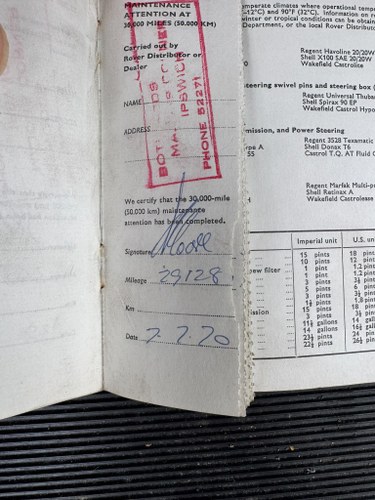 MAINTENANCE
ATTENTION AT
30,000 MILES (50,000 KM)
Carried out by
Rover Distributor or
Dealer
NAME
ADDRESS
BOT
MA
IPSWICH
PHONE 52271
We certify that the 30,000-mile
(50,000 km) maintenance
attention has been completed.
Signature Moore
Mileage 29128
Km
Date 7.7.70
mperate climates where operational temp
-12°C) and 90°F (32°C). Information on r
winter or tropical conditions can be obtain
Department, or the local Rover Distributor
Regent Havoline 20/20W
Shell X100 SAE 20/20W
Wakefield Castrolite
steering swivel pins and steering box (
Regent Universal Thuba
Shell Spirax 90 EP
Wakefield Castrol Hypo
mission, and Power Steering
Regent 3528 Texamatic
Shell Donax T6
Castrol T.Q. AT Fluid
ype A
Regent Marfak Multi-p
Shell Retinax A
Wakefield Castrolease
Imperial unit U.S. un
15 pints 18 pints
10 pints 12 pints
ew filter 1 pint 1.2 pint
1 pint 1.2 pint
3 pints 3½ pints
5 pints 6 pints
3 pints 3½ pints
1½ pints 1.8 pint
15 pints 18 pints
ission 3 pints 3½ pints
11½ gallons 14 gallo
14 gallons 16½ gallo
pints 24 pints
pints 26½ pints